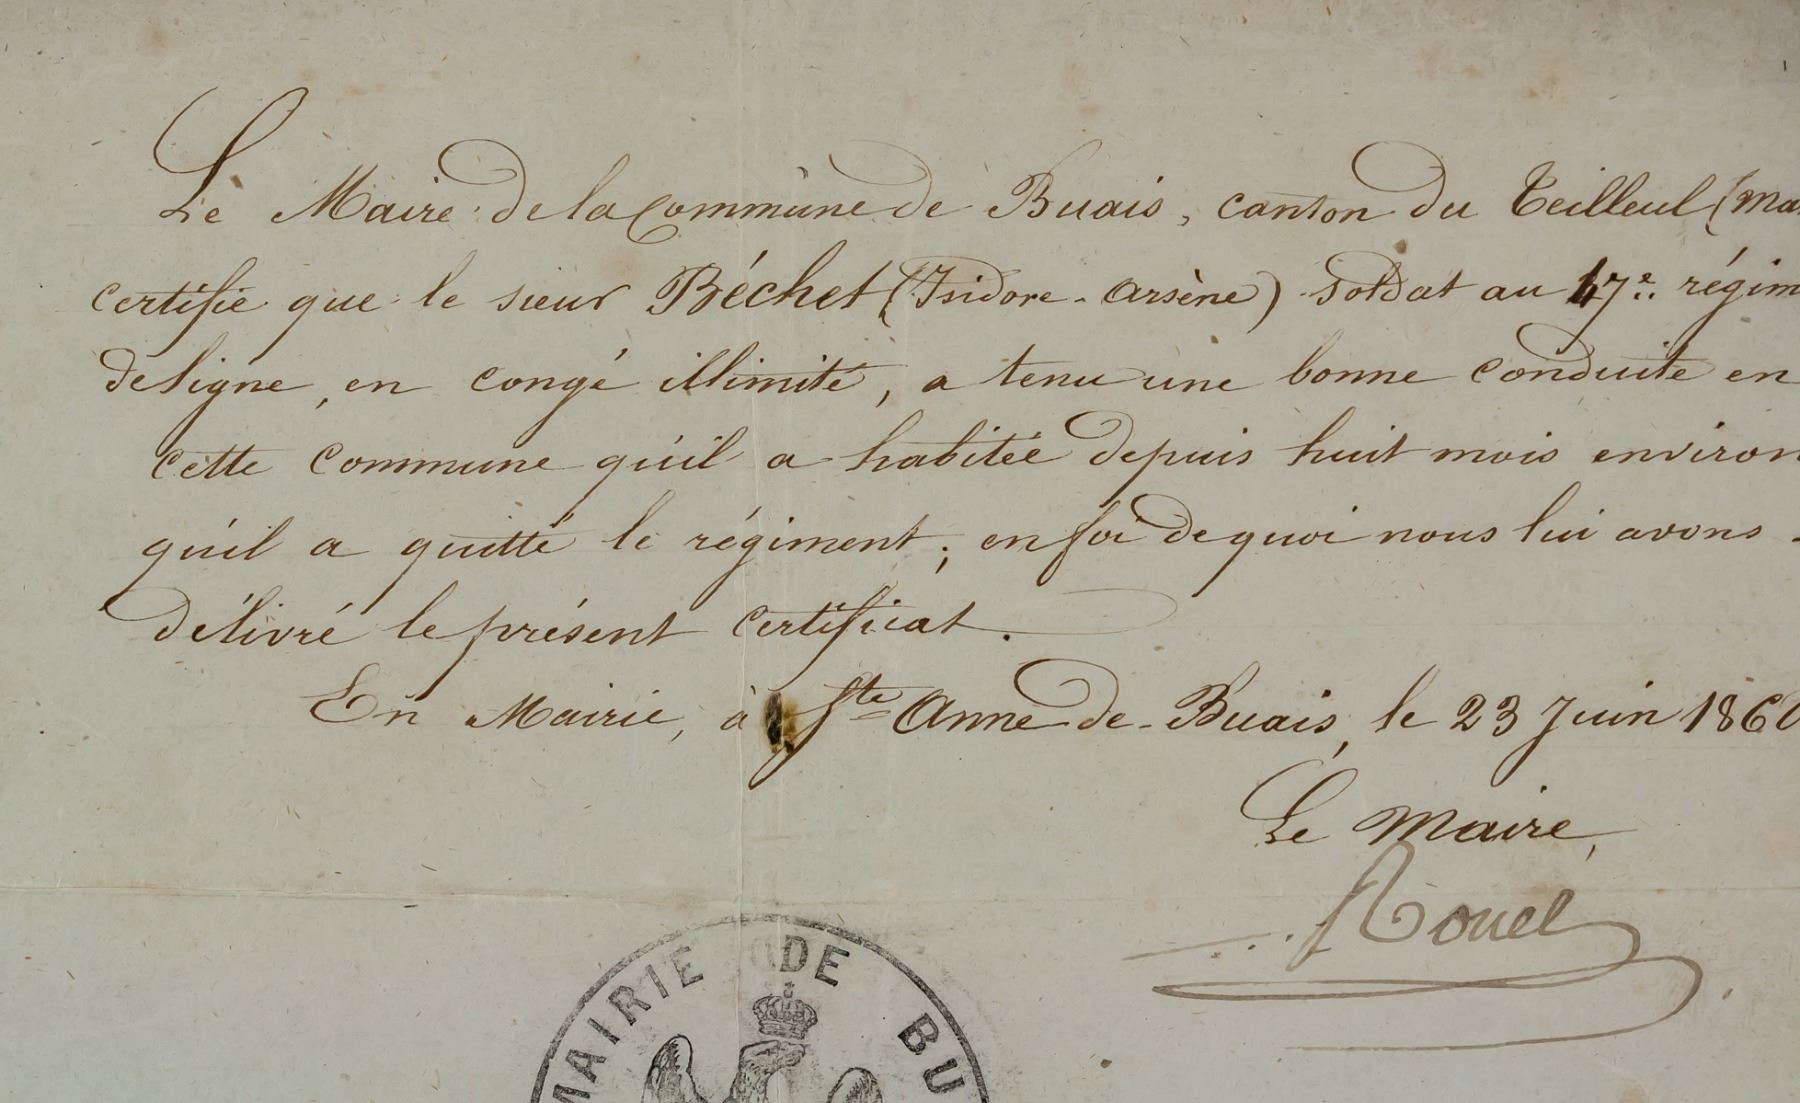 Le Maire de la Commune de Buais, canton du Teilleul (Ma
certifie que le sieur Béchet (Isidore-Arsène) soldat au 47e. régim
de ligne, en congé illimité, a tenu une bonne conduite en
cette commune qu'il a habitée depuis huit mois environ
qu'il a quitté le régiment; en foi de quoi nous lui avons
délivré le présent certificat.
En Mairie, à Ste Anne-de-Buais, le 23 Juin 1860
Le Maire,
Rouel
MAIRIE DE BU